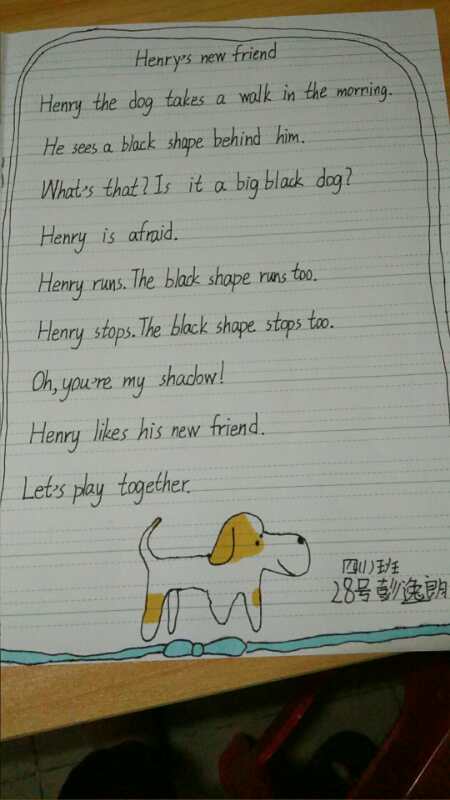 Henry's new friend
Henry the dog takes a walk in the morning.
He sees a black shape behind him.
What's that? Is it a big black dog?
Henry is afraid.
Henry runs. The black shape runs too.
Henry stops. The black shape stops too.
Oh, you're my shadow!
Henry likes his new friend.
Let's play together.
四(1)班
28号彭逸朗